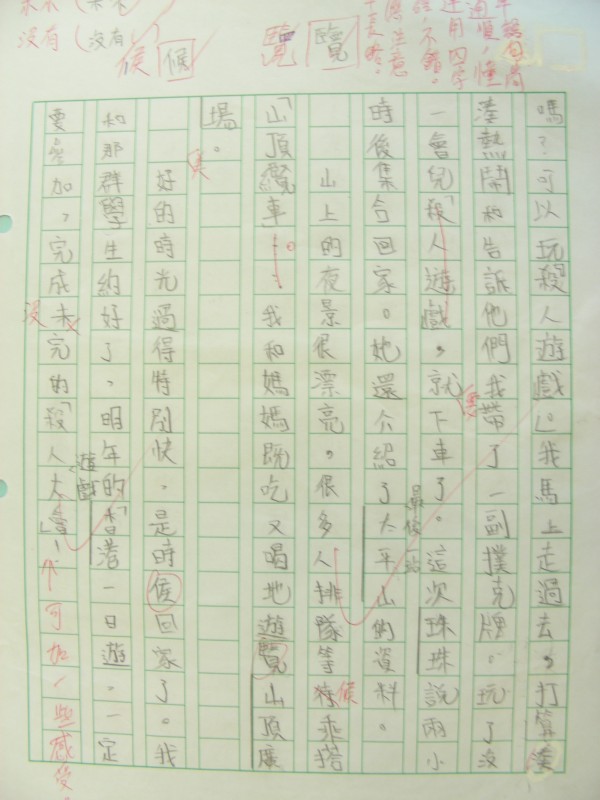 嗎？可以玩「殺人遊戲」。我馬上走過去，打算湊
湊熱鬧和告訴他們我帶了一副撲克牌。玩了沒
一會兒「殺人遊戲，就下車了。這次珠珠說兩小
最後一站
時後集合回家。她還介紹了太平山的資料。
山上的夜景很漂亮，很多人排隊等待乘搭
候
「山頂纜車」。我和媽媽既吃又喝地遊覽山頂廣
場。
好的時光過得特別快，是時候回家了。我
和那群學生約好了，明年的「香港一日遊。一定
要參加，完成未完的「殺人大會」！
遊戲
沒
亦可加一些感受。
沒有（沒有）
候 候
覽 覽